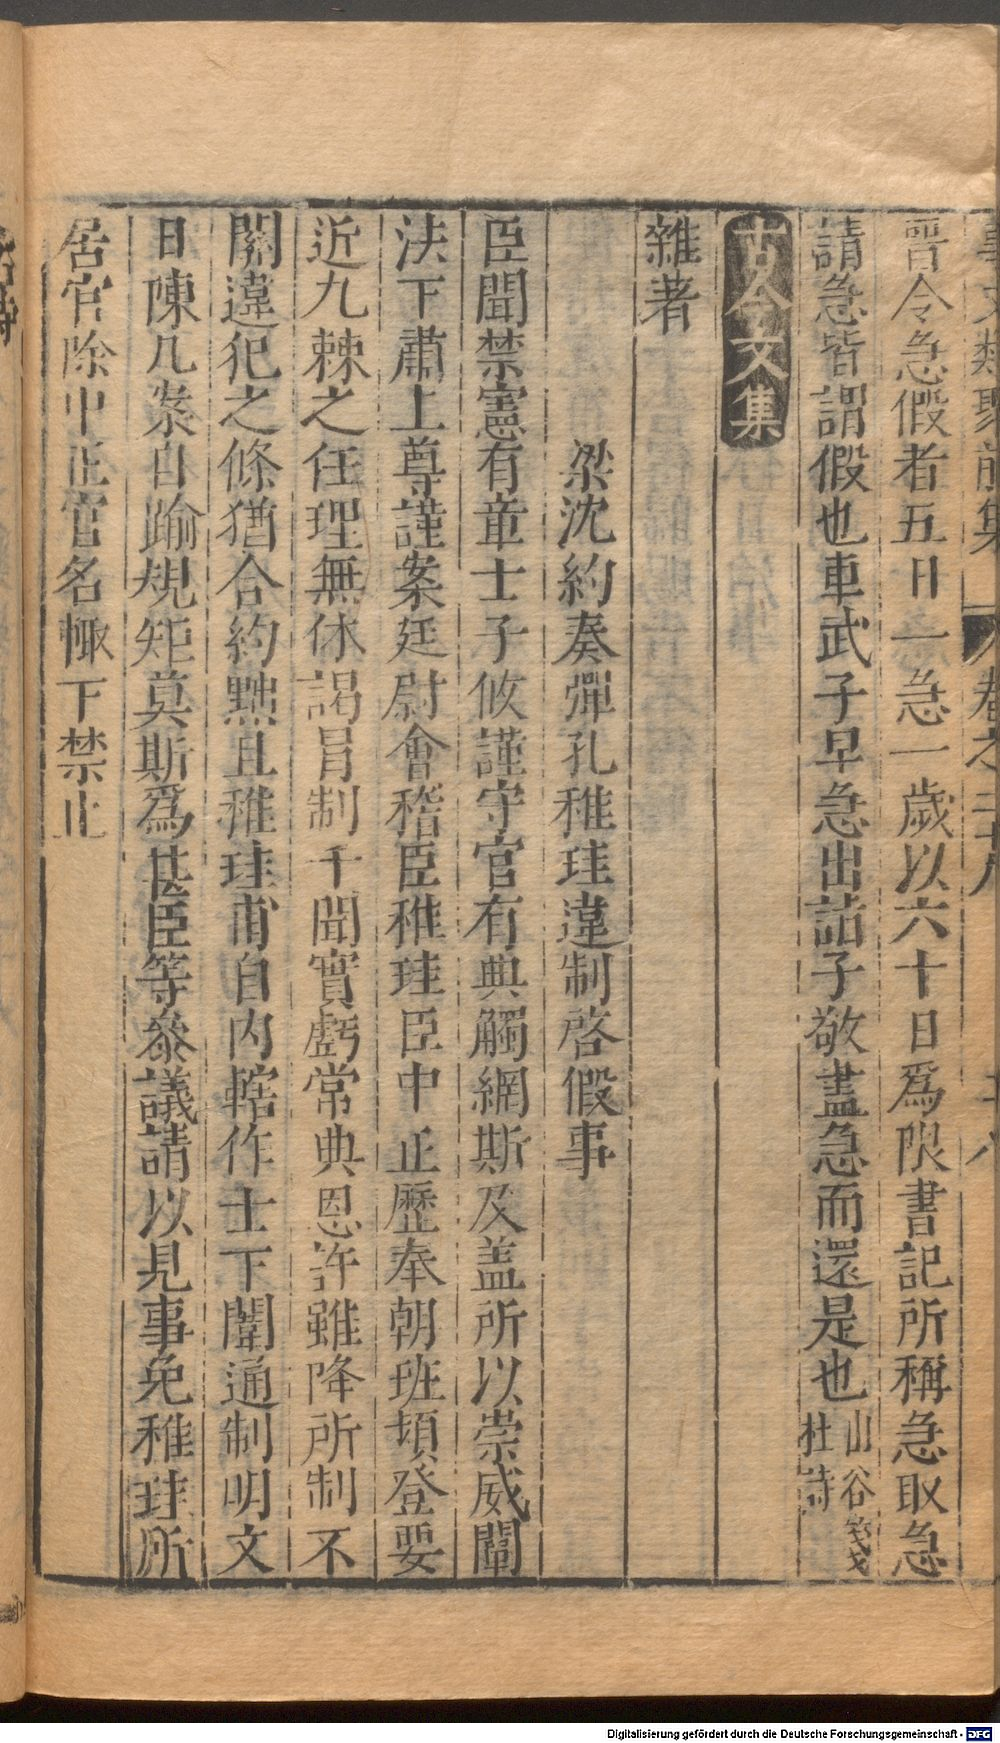 事文類聚前集 卷之二十八 十八
晋令急假者五日一急一歲以六十日爲限書記所稱急取急
請急皆謂假也車武子早急出詣子敬盡急而還是也山谷箋杜詩
古今文集
雜著
梁沈約奏彈孔稚珪違制啓假事
臣聞禁憲有章士子攸謹守官有典觸網斯及盖所以崇威闡
法下肅上尊謹案廷尉會稽臣稚珪臣中正歷奉朝班頻登要
近九棘之任理無休謁冐制干聞實虧常典恩許雖降所制不
關違犯之條猶合約黜且稚珪甫自內轄作士下闈通制明文
日陳几案自踰規矩莫斯爲甚臣等叅議請以見事免稚珪所
居官除中正官名輒下禁止
Digitalisierung gefördert durch die Deutsche Forschungsgemeinschaft - DFG